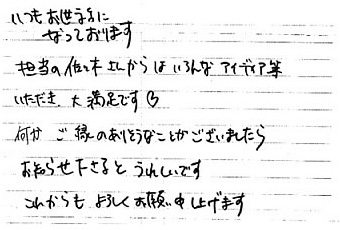 いつもお世話に
なっております
担当の佐々木さんからはいろんなアイディア等
いただき、大満足です♡
何か ご縁のありそうなことがございましたら
お知らせ下さるとうれしいです
これからもよろしくお願い申し上げます